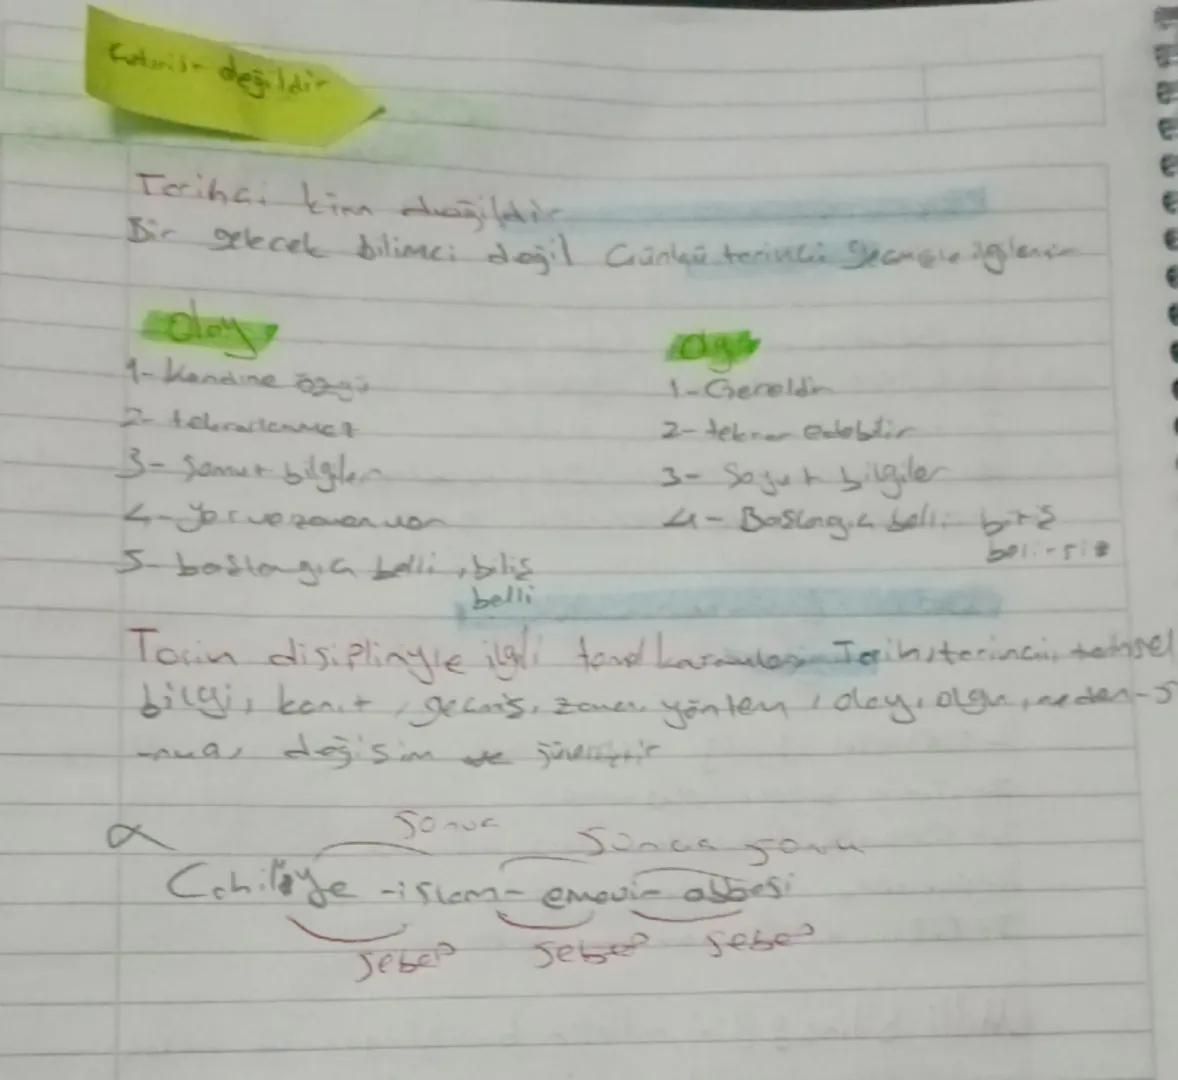 değildir
Tarihçi kim değildir
Bir gelecek bilimci değil Günkü tarihçi geçmişle ilgilenir
olay
olgu
1- Kendine özgü
1- Geneldir
2- tekrarlanmaz
2- tekrar edebilir
3- Somut bilgiler
3- Soyut bilgiler
4- yer ve zaman var
4- Başlangıç belli bitiş
belirsiz
5- başlangıç belli, bitiş
belli
Tarih disipliniyle ilgili temel kavramlar Tarih, tarihçi, tarihsel
bilgi, kanıt, geçmiş, zaman, yöntem, olay, olgu, neden-s
-nuç, değişim ve
sonuç
Sonuç sonuç
Cahiliye - islam - emevi - abbasi
sebep sebep sebep